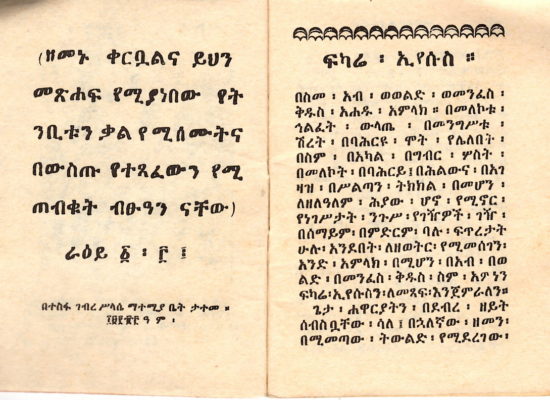 (ዘመኑ ቀርቧልና ይህን
መጽሐፍ የሚያነበው የት
ንቢቱን ቃል የሚሰሙትና
በውስጡ የተጻፈውን የሚ
ጠብቁት ብፁዓን ናቸው)
ራዕይ ፩ ፡ ፫ ፤
በተስፋ ገብረ ሥላሴ ማተሚያ ቤት ታተመ ።
ዓ ም ፡
ፍካሬ ፡ ኢየሱስ ።
በስመ ፡ አብ ፡ ወወልድ ፡ ወመንፈስ ፡
ቅዱስ ፡ አሐዱ ፡ አምላክ ። በመለኮቱ ፡
ኅልፈት ፡ ውላጤ ፡ በመንግሥቱ ፡
ሽረት ፡ በባሕርዩ ፡ ሞት ፡ የሌለበት ፡
በስም ፡ በአካል ፡ በግብር ፡ ሦስት ፡
በመለኮት ፡ በባሕርይ ፤ በህልውና ፡ በአገ
ዛዝ ፡ በሥልጣን ፡ ትክክል ፡ በመሆን ፡
ለዘለዓለም ፡ ሕያው ፡ ሆኖ ፡ የሚኖር ፡
የነገሥታት ፡ ንጉሥ ፡ የገዥዎች ፡ ገዥ ፡
በሰማይም ፡ በምድርም ፡ ባሉ ፡ ፍጥረታት
ሁሉ ፡ አንደበት ፡ ለዘወትር ፡ የሚመሰገን ፡
አንድ ፡ አምላክ ፡ በሚሆን ፡ በአብ ፡ በወ
ልድ ፡ በመንፈስ ፡ ቅዱስ ፡ ስም ፡ አምነን
ፍካሬ ፡ ኢየሱስን ፡ ለመጻፍ ፡ እንጀምራለን ።
ጌታ ፡ ሐዋርያትን ፡ በደብረ ፡ ዘይት
ሰብስቧቸው ፡ ሳለ ፤ በኋለኛው ፡ ዘመን ፡
በሚመጣው ፡ ትውልድ ፡ የሚደረገው ፡